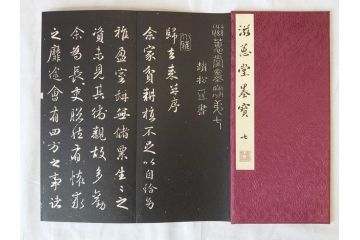 滋蕙堂墨寶 七
滋蕙堂墨寶第七
趙松雪書
歸去来并序
余家貧耕植不足以自給幼
稚盈室缾無儲粟生生之
資未見其術親故多勸
余為長吏脱然有懷求
之靡途會有四方之事諸